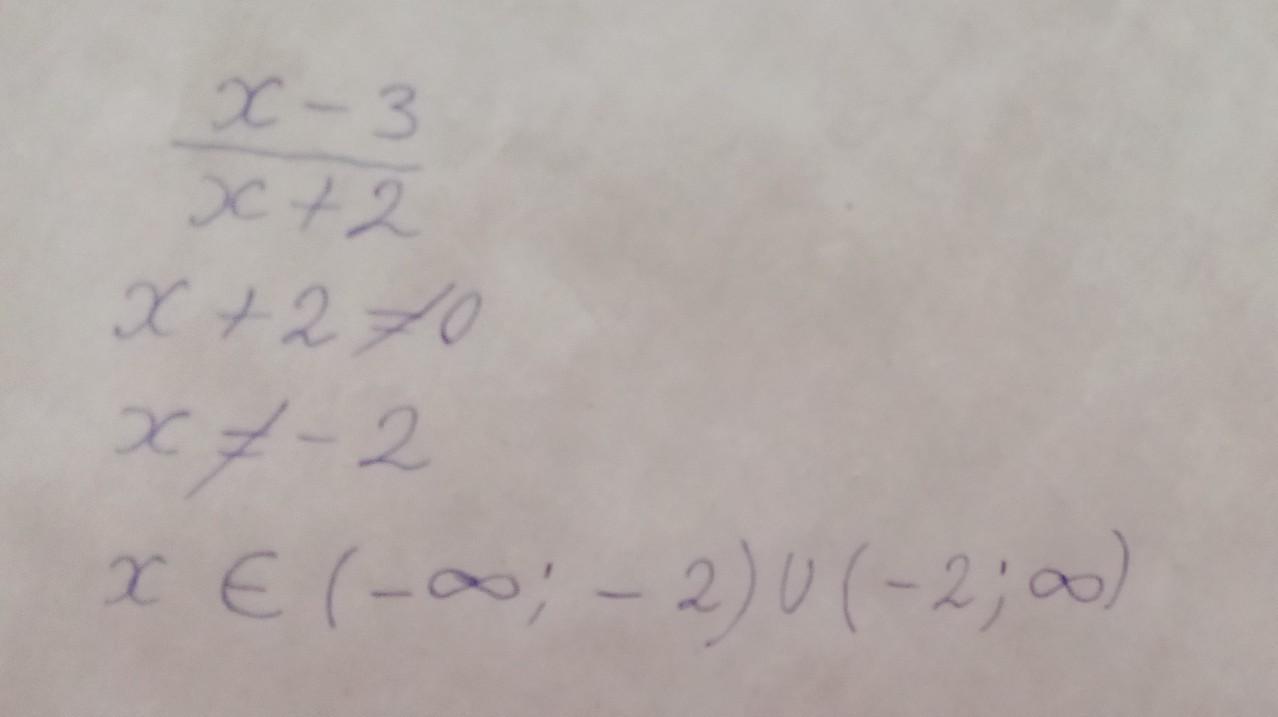 x - 3
x + 2
x + 2 ≠ 0
x ≠ - 2
x ∈ (-∞; - 2) ∪ (-2; ∞)